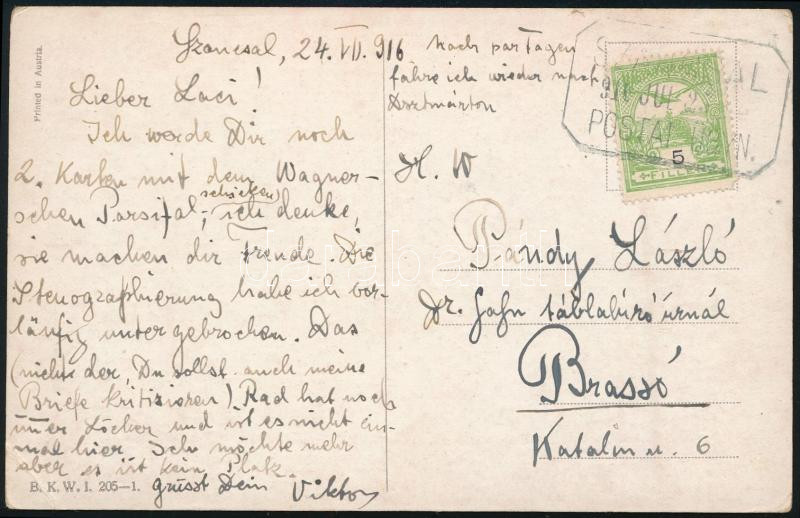 Printed in Austria.
Szancsal, 24. VII. 916
Lieber Laci!
Ich werde Dir noch
2. Karten mit dem Wagner-
schen Parsifal, schicken ich denke,
sie machen dir Freude. Die
Stenographierung habe ich vor-
läufig unter gebrochen. Das
(nicht der Du sollst auch meine
Briefe kritisieren) Rad hat noch
immer Löcher und ist es nicht ein-
mal hier. Ich möchte mehr
aber es ist kein Platz.
grüsst Dein Viktor
B. K. W. I. 205-1.
Nach par Tagen
fahre ich wieder nach
Dsztmárton
POSTAI
5
FILLÉR
H. W
Pándy László
Dr. Jahn táblabíró úrnál
Brassó
Katalin u. 6